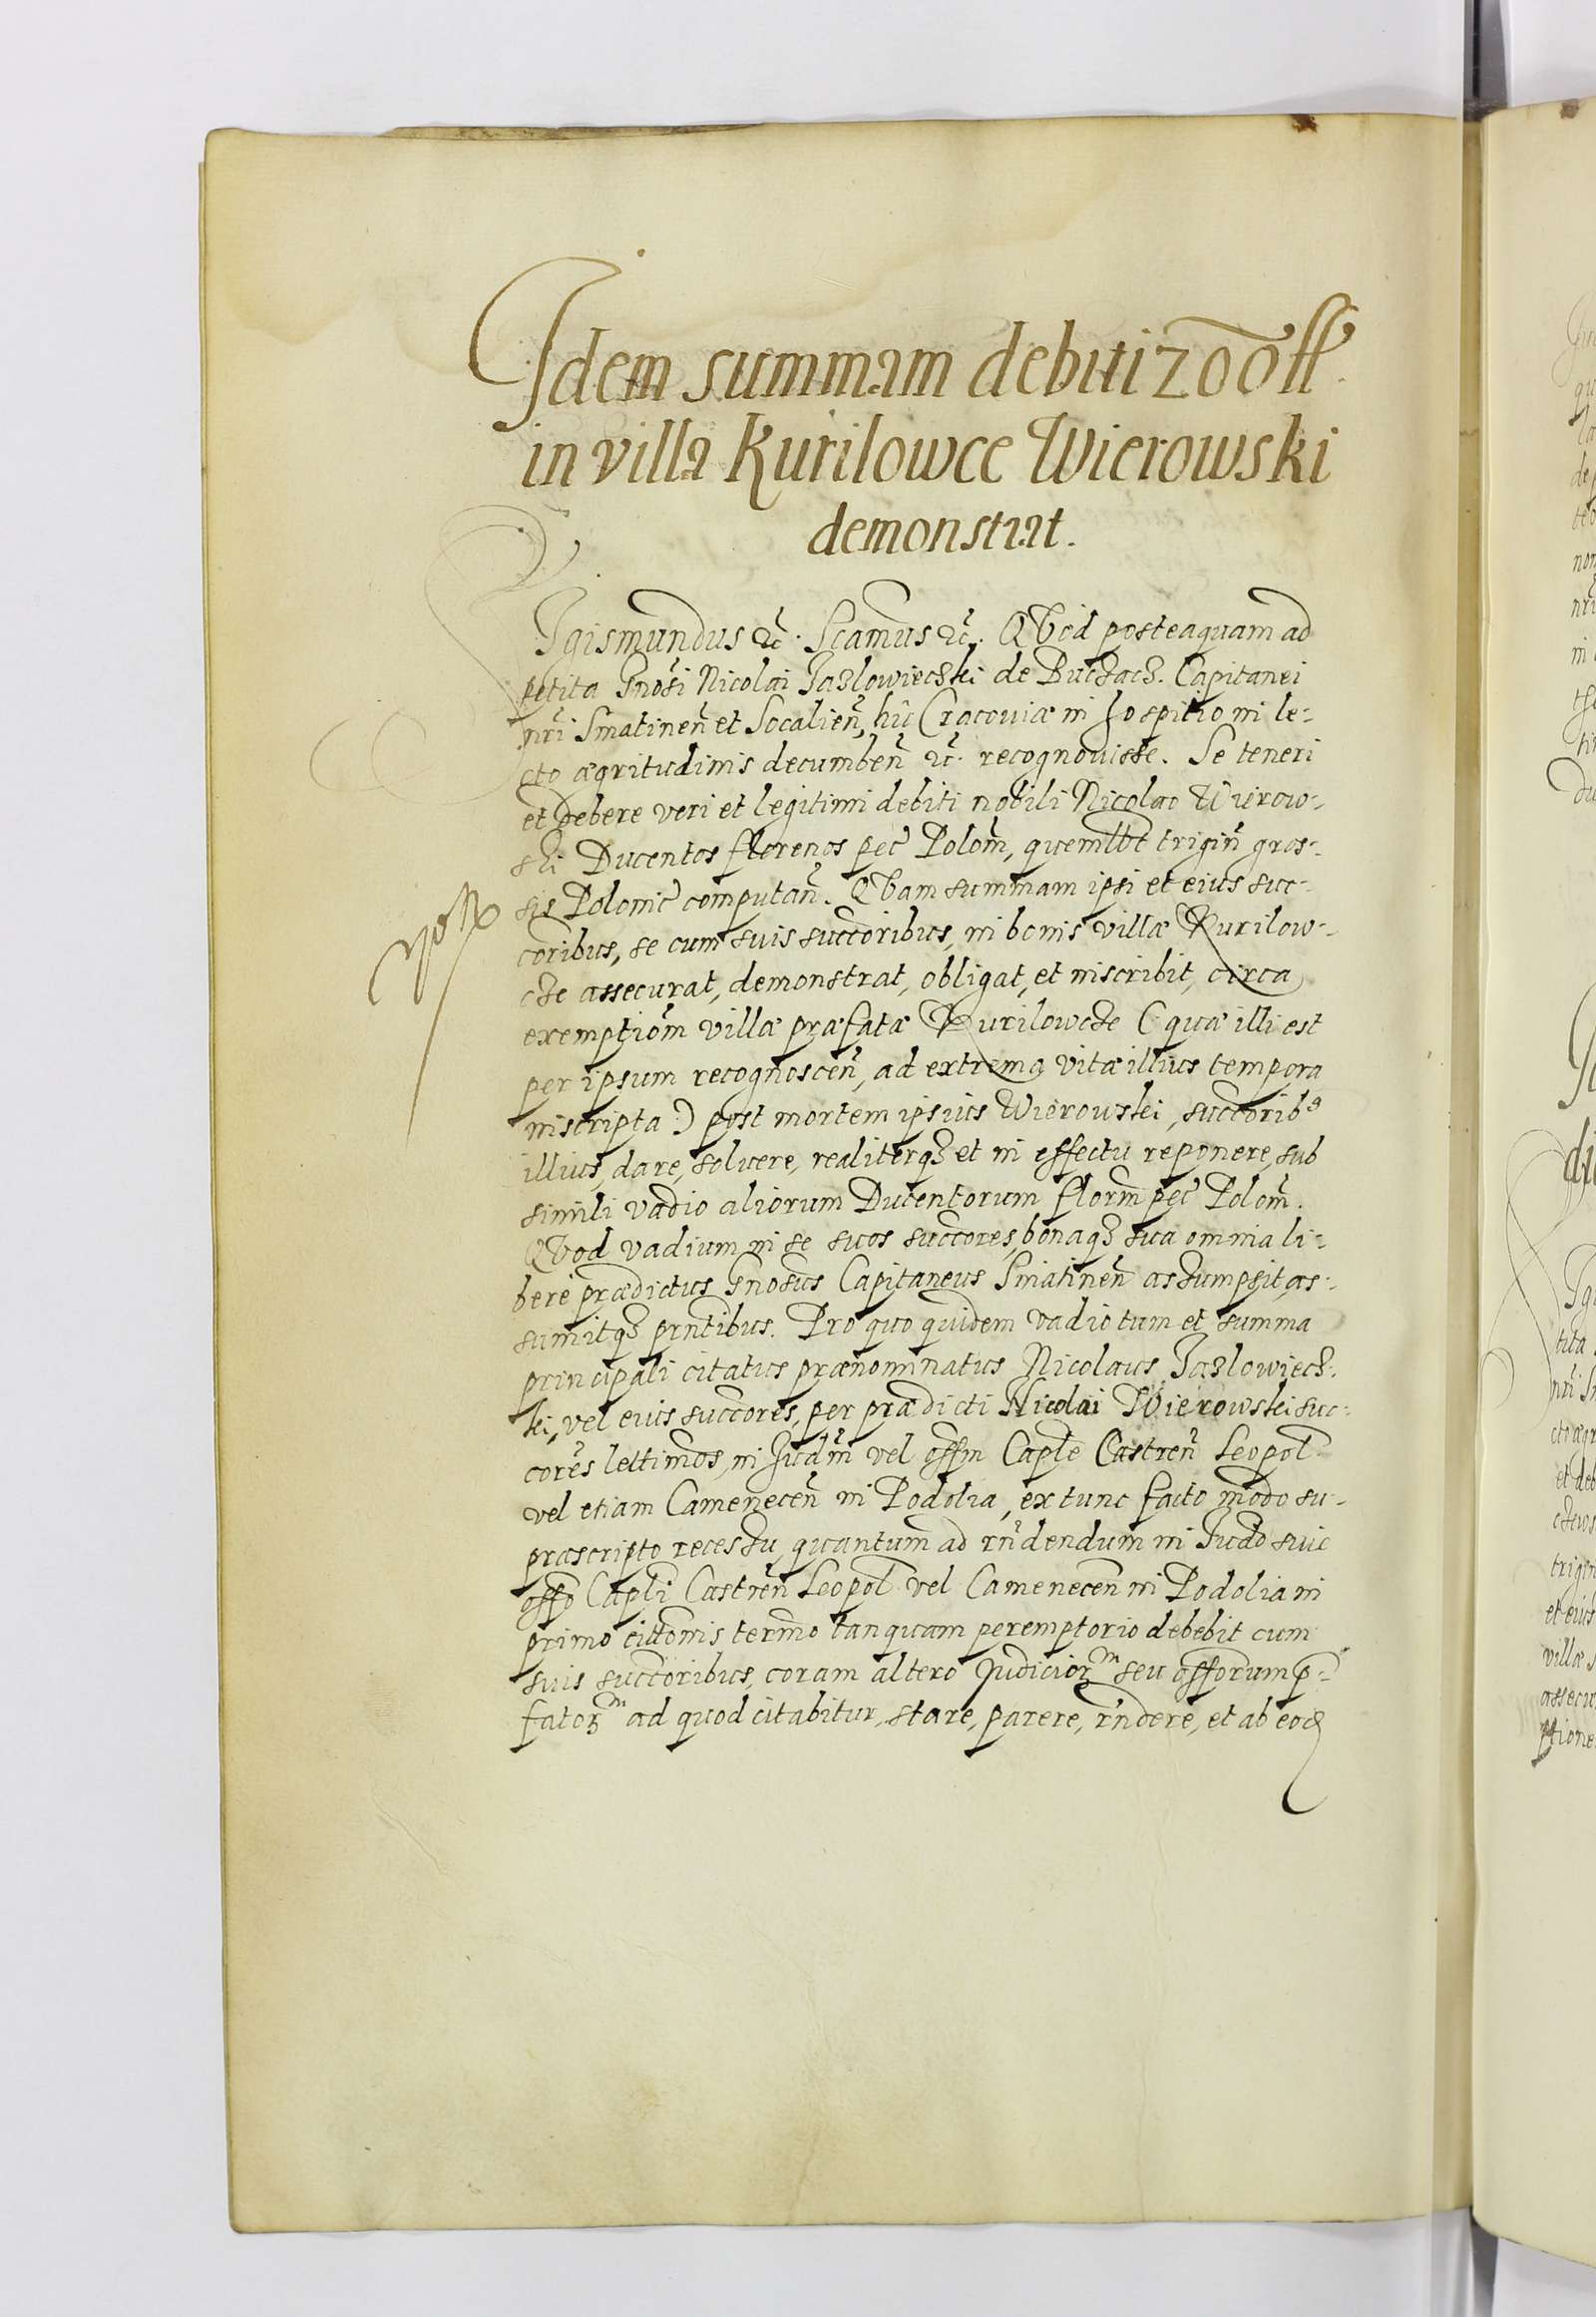 Idem summam debiti 200 fl.
in villa Kurilowce Wierowski
demonstrat.
Sigismundus &c̃. Sc̃amus &c̃. QVod posteaquam ad
petita Gnosi Nicolai Jazlowieczki de Buczacz. Capitanei
nr̃i Sniatinen̄ et Socalien̄, hic̃ Cracoviæ in Hospitio in le-
cto ægritudinis decumben̄ &c̃. recognovisse. Se teneri
et debere veri et legitimi debiti nobili Nicolao Wierow-
ski Ducentos florenos pec̃ Polom̃, quemlibet trigin̄ gros-
sis Polonic̃ computan̄. QVam summam ipsi et eius suc-
coribus, se cum suis succoribus, in bonis villæ Kurilow-
cze assecurat, demonstrat, obligat, et inscribit, circa
exemptiom̃ villæ præfatæ Kurilowcze (: quæ illi est
per ipsum recognoscen̄, ad extrema vitæ illius tempora
inscripta :) post mortem ipsius Wierowski, succorib9
illius, dare, solvere, realiterq3 et in effectu reponere, sub
simili vadio aliorum Ducentorum florm̃ pec̃ Polom̃.
QVod vadium in se suos succores, bonaq3 sua omnia li-
berè prædictus Gnosus Capitaneus Sniatinen̄ assumpsit, as-
sumitq3 prñtibus. Pro quo quidem vadio tum et summa
principali citatus prænominatus Nicolaus Jazlowiecz-
ki, vel eius succores, per prædicti Nicolai Wierowski suc-
cores lettimos, in Iudm̃ vel offm Caple Castren̄ Leopol
vel etiam Camenecen̄ in Podolia, ex tunc facto modo su-
præscripto recessu, quantum ad rñdendum in Iudo sivè
offo Capli Castren̄ Leopol vel Camenecen̄ in Podolia in
primo cittonis termo tanquam peremptorio debebit cum
suis succoribus, coram altero Judicior3m seu offorum p̄-
fator3m ad quod citabitur, stare, parere, rñdere, et ab eod